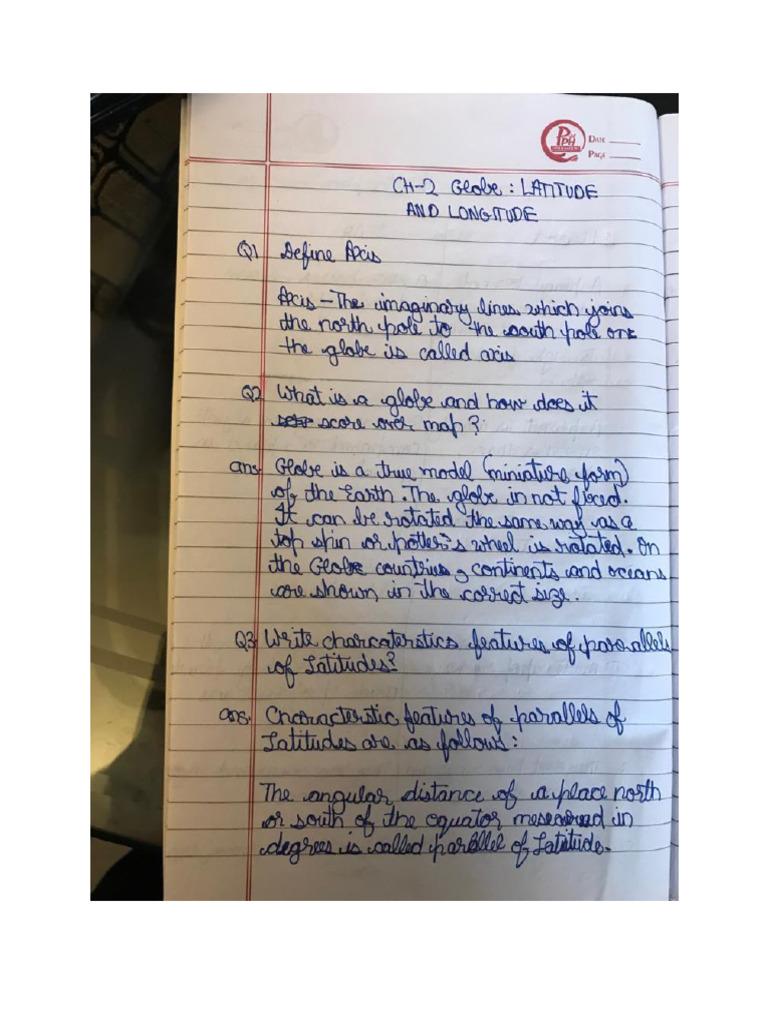 PPH
DATE
PAGE
CH-2 Globe : LATITUDE
AND LONGITUDE
Q1 Define Axis
Axis – The imaginary lines which joins
the north pole to the south pole one
the globe is called axis
Q2 What is a globe and how does it
score over map ?
ans. Globe is a true model (miniature form)
of the Earth . The globe in not fixed.
It can be rotated the same way as a
top spin or potter's wheel is rotated. On
the Globe countries , continents and oceans
are shown in the correct size .
Q3 Write charcaterstics features of parallels
of Latitudes?
ans. Characterstic features of parallels of
Latitudes are as follows :
The angular distance of a place north
or south of the equator in
degrees is called parallel of Latitude.